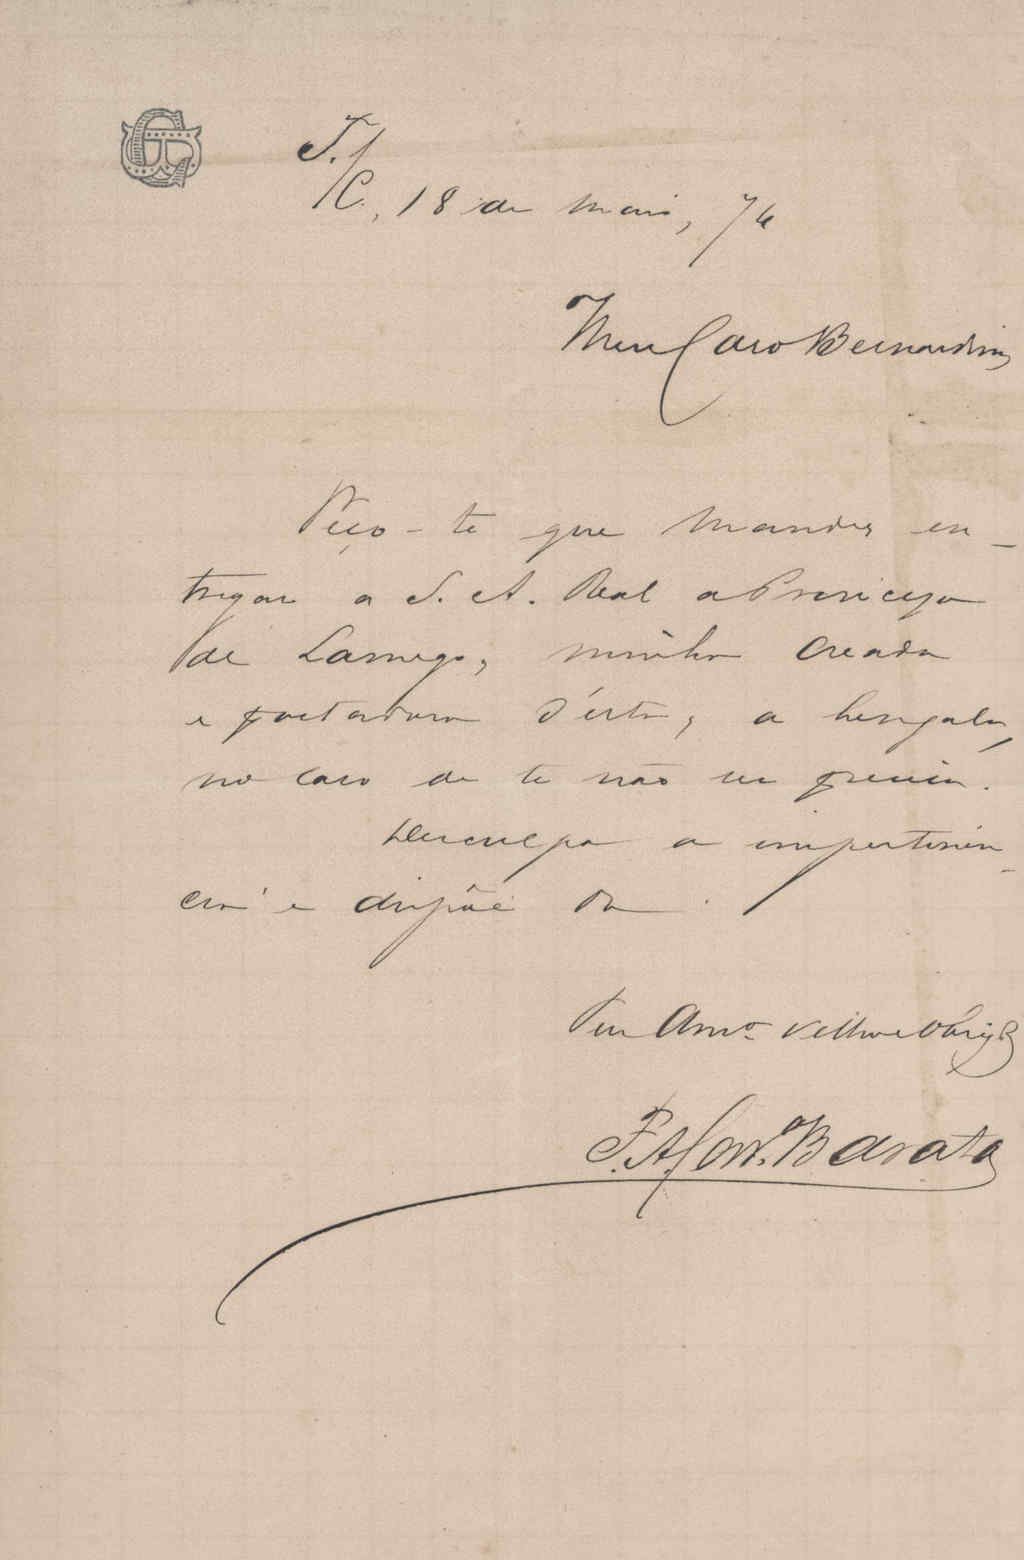 T./C., 18 de Maio, 74
Meu Caro Bernardino
Peço-te que mandes en-
tregar a S. A. Real a Princeza
de Lamego, minha creada
e portadora d'esta, a bengala,
no caso de te não ser precisa.
Desculpa a impertinen-
cia e dispõe do
Teu Amo. Velho e Obrigdo
F. A. Barata